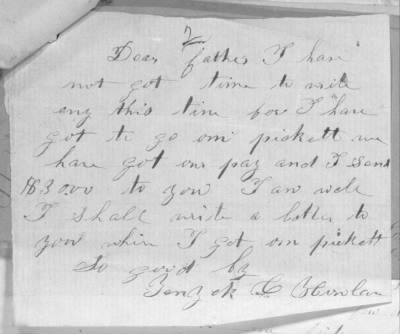 7
Dear father I have
not got time to write
eny this time for I have
got to go om pickett we
have got our pay and I send
$30.00 to you I am well
I shall write a letter to
you when I got om pickett
So good by